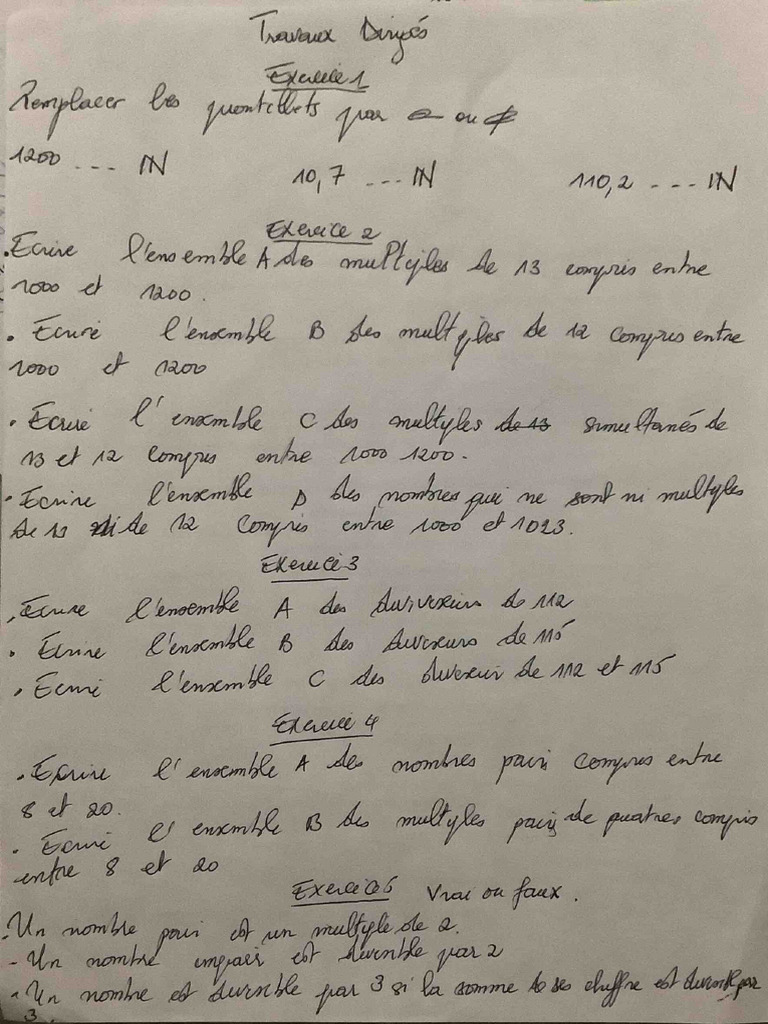 Travaux Dirigés
Exercice 1
Remplacer les pointillets par ∈ ou ∉
1200 --- IN 10,7 --- IN 110,2 --- IN
Exercice 2
. Ecrire l'ensemble A des multiples de 13 compris entre
1000 et 1200.
. Ecrire l'ensemble B des multiples de 12 compris entre
1000 et 1200
. Ecrire l'ensemble C des multiples simultanés de
13 et 12 compris entre 1000 1200.
. Ecrire l'ensemble D des nombres qui ne sont ni multiples
de 13 ni de 12 compris entre 1000 et 1023.
Exercice 3
. Ecrire l'ensemble A des diviseurs de 112
. Ecrire l'ensemble B des diviseurs de 115
. Ecrire l'ensemble C des diviseur de 112 et 115
Exercice 4
. Ecrire l'ensemble A des nombres pairs compris entre
8 et 20.
. Ecrire l'ensemble B des multiples pairs de quatres compris
entre 8 et 20
Exercice 5 Vrai ou faux.
- Un nombre pair est un multiple de 2.
- Un nombre impair est divisible par 2
- Un nombre est divisible par 3 si la somme de ses chiffre est divisible par
3.